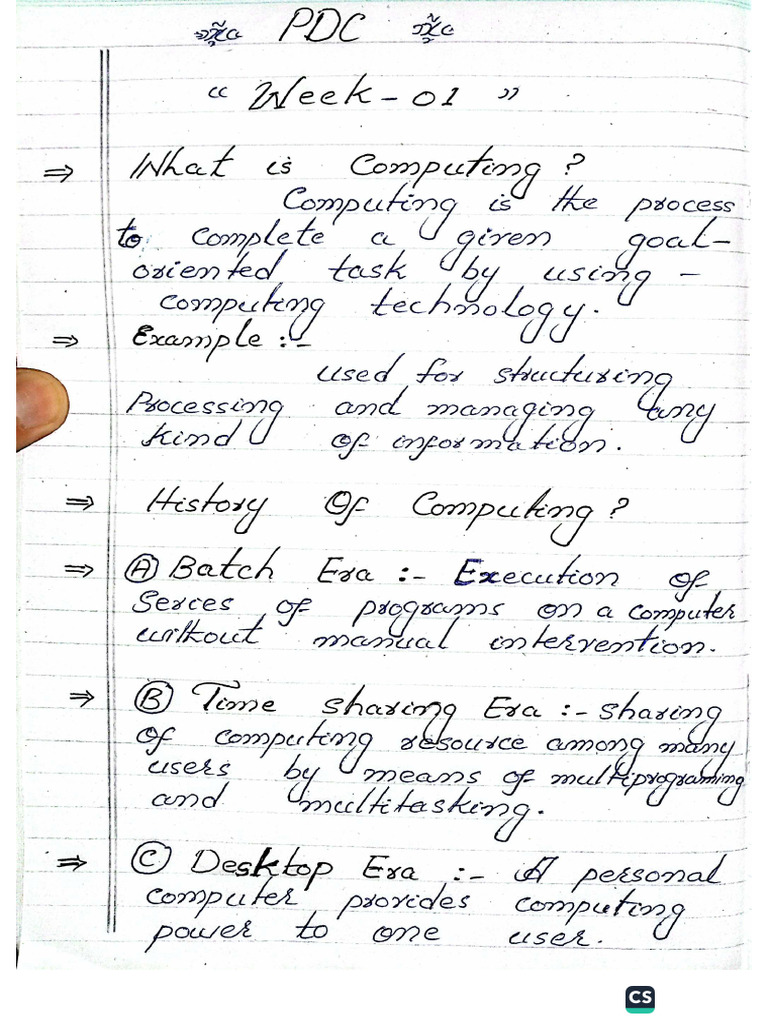 PDC
"Week-01"
⇒ What is Computing?
Computing is the process
to complete a given goal-
oriented task by using -
computing technology.
⇒ Example :-
used for structuring
Processing and managing any
kind of information.
⇒ History Of Computing?
⇒ Ⓐ Batch Era :- Execution of
Series of programs on a computer
without manual intervention.
⇒ Ⓑ Time sharing Era :- sharing
Of computing resource among many
users by means of multiprograming
and multitasking.
⇒ Ⓒ Desktop Era :- A personal
computer provides computing
power to one user.
CS